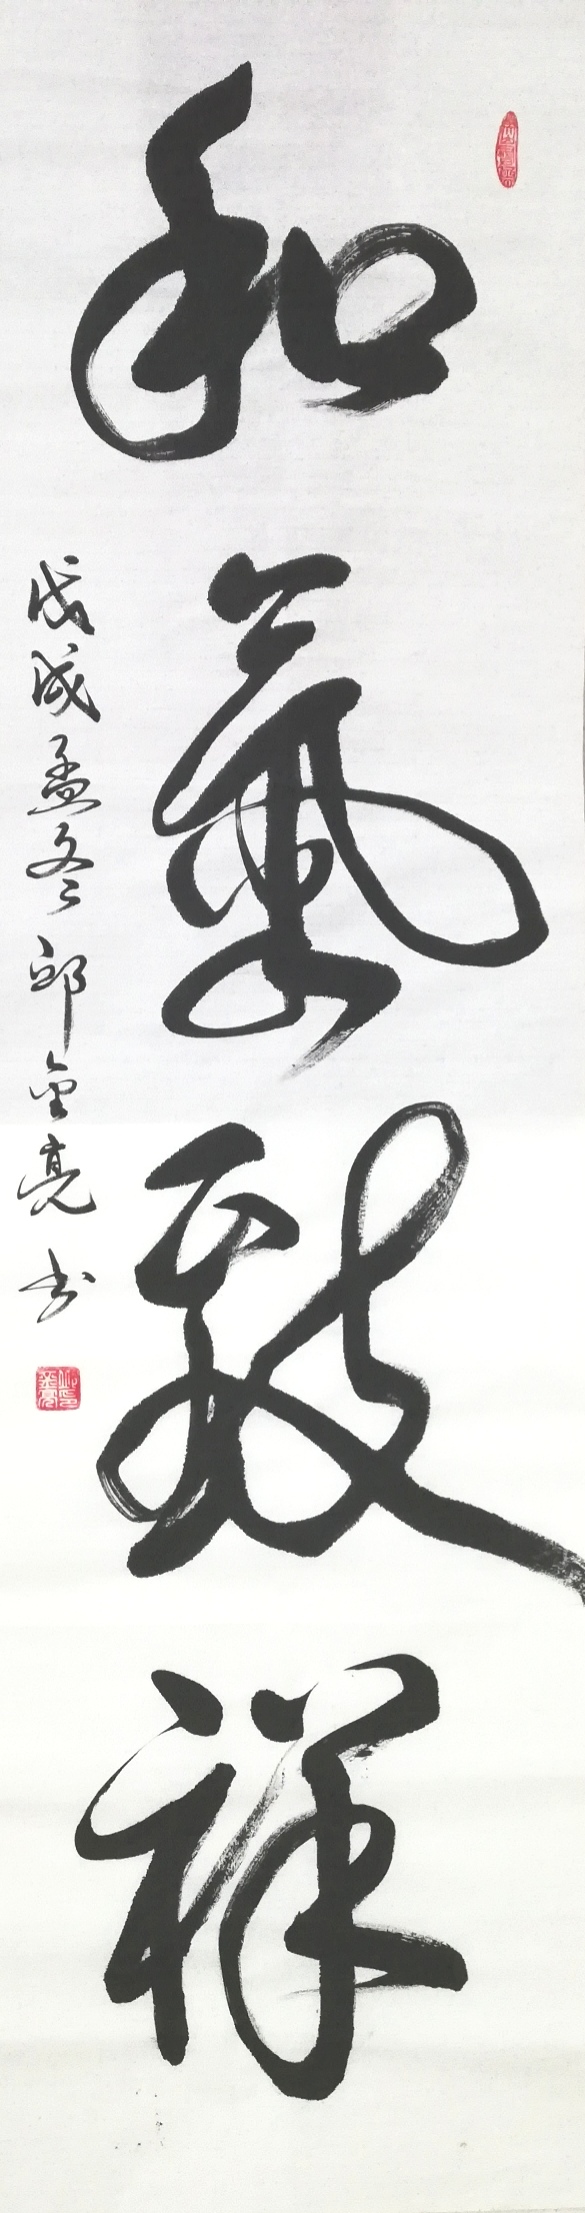 和氣致祥
戊戌孟冬邱金亮书